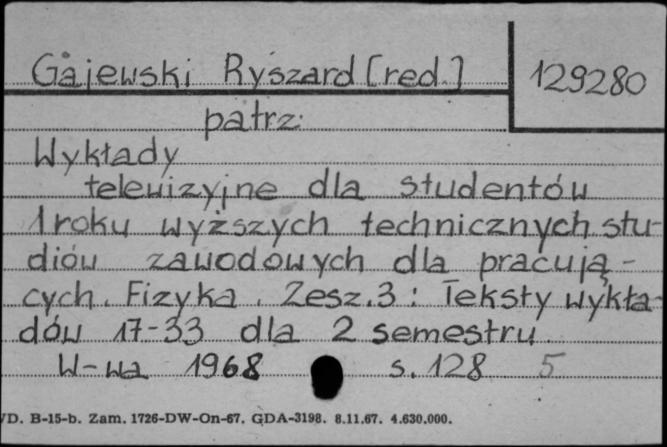 Gajewski Ryszard [red.] 129280
patrz:
Wykłady
telewizyjne dla studentów
1 roku wyższych technicznych stu-
diów zawodowych dla pracują-
cych. Fizyka. Zesz.3: Teksty wykła-
dów 17-33 dla 2 semestru.
W-wa 1968 s. 128 5
VD. B-15-b. Zam. 1726-DW-On-67. GDA-3198. 8.11.67. 4.630.000.